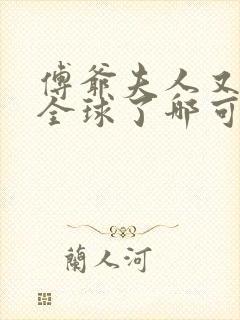 傅爺夫人又
全球了那可
蘭人河